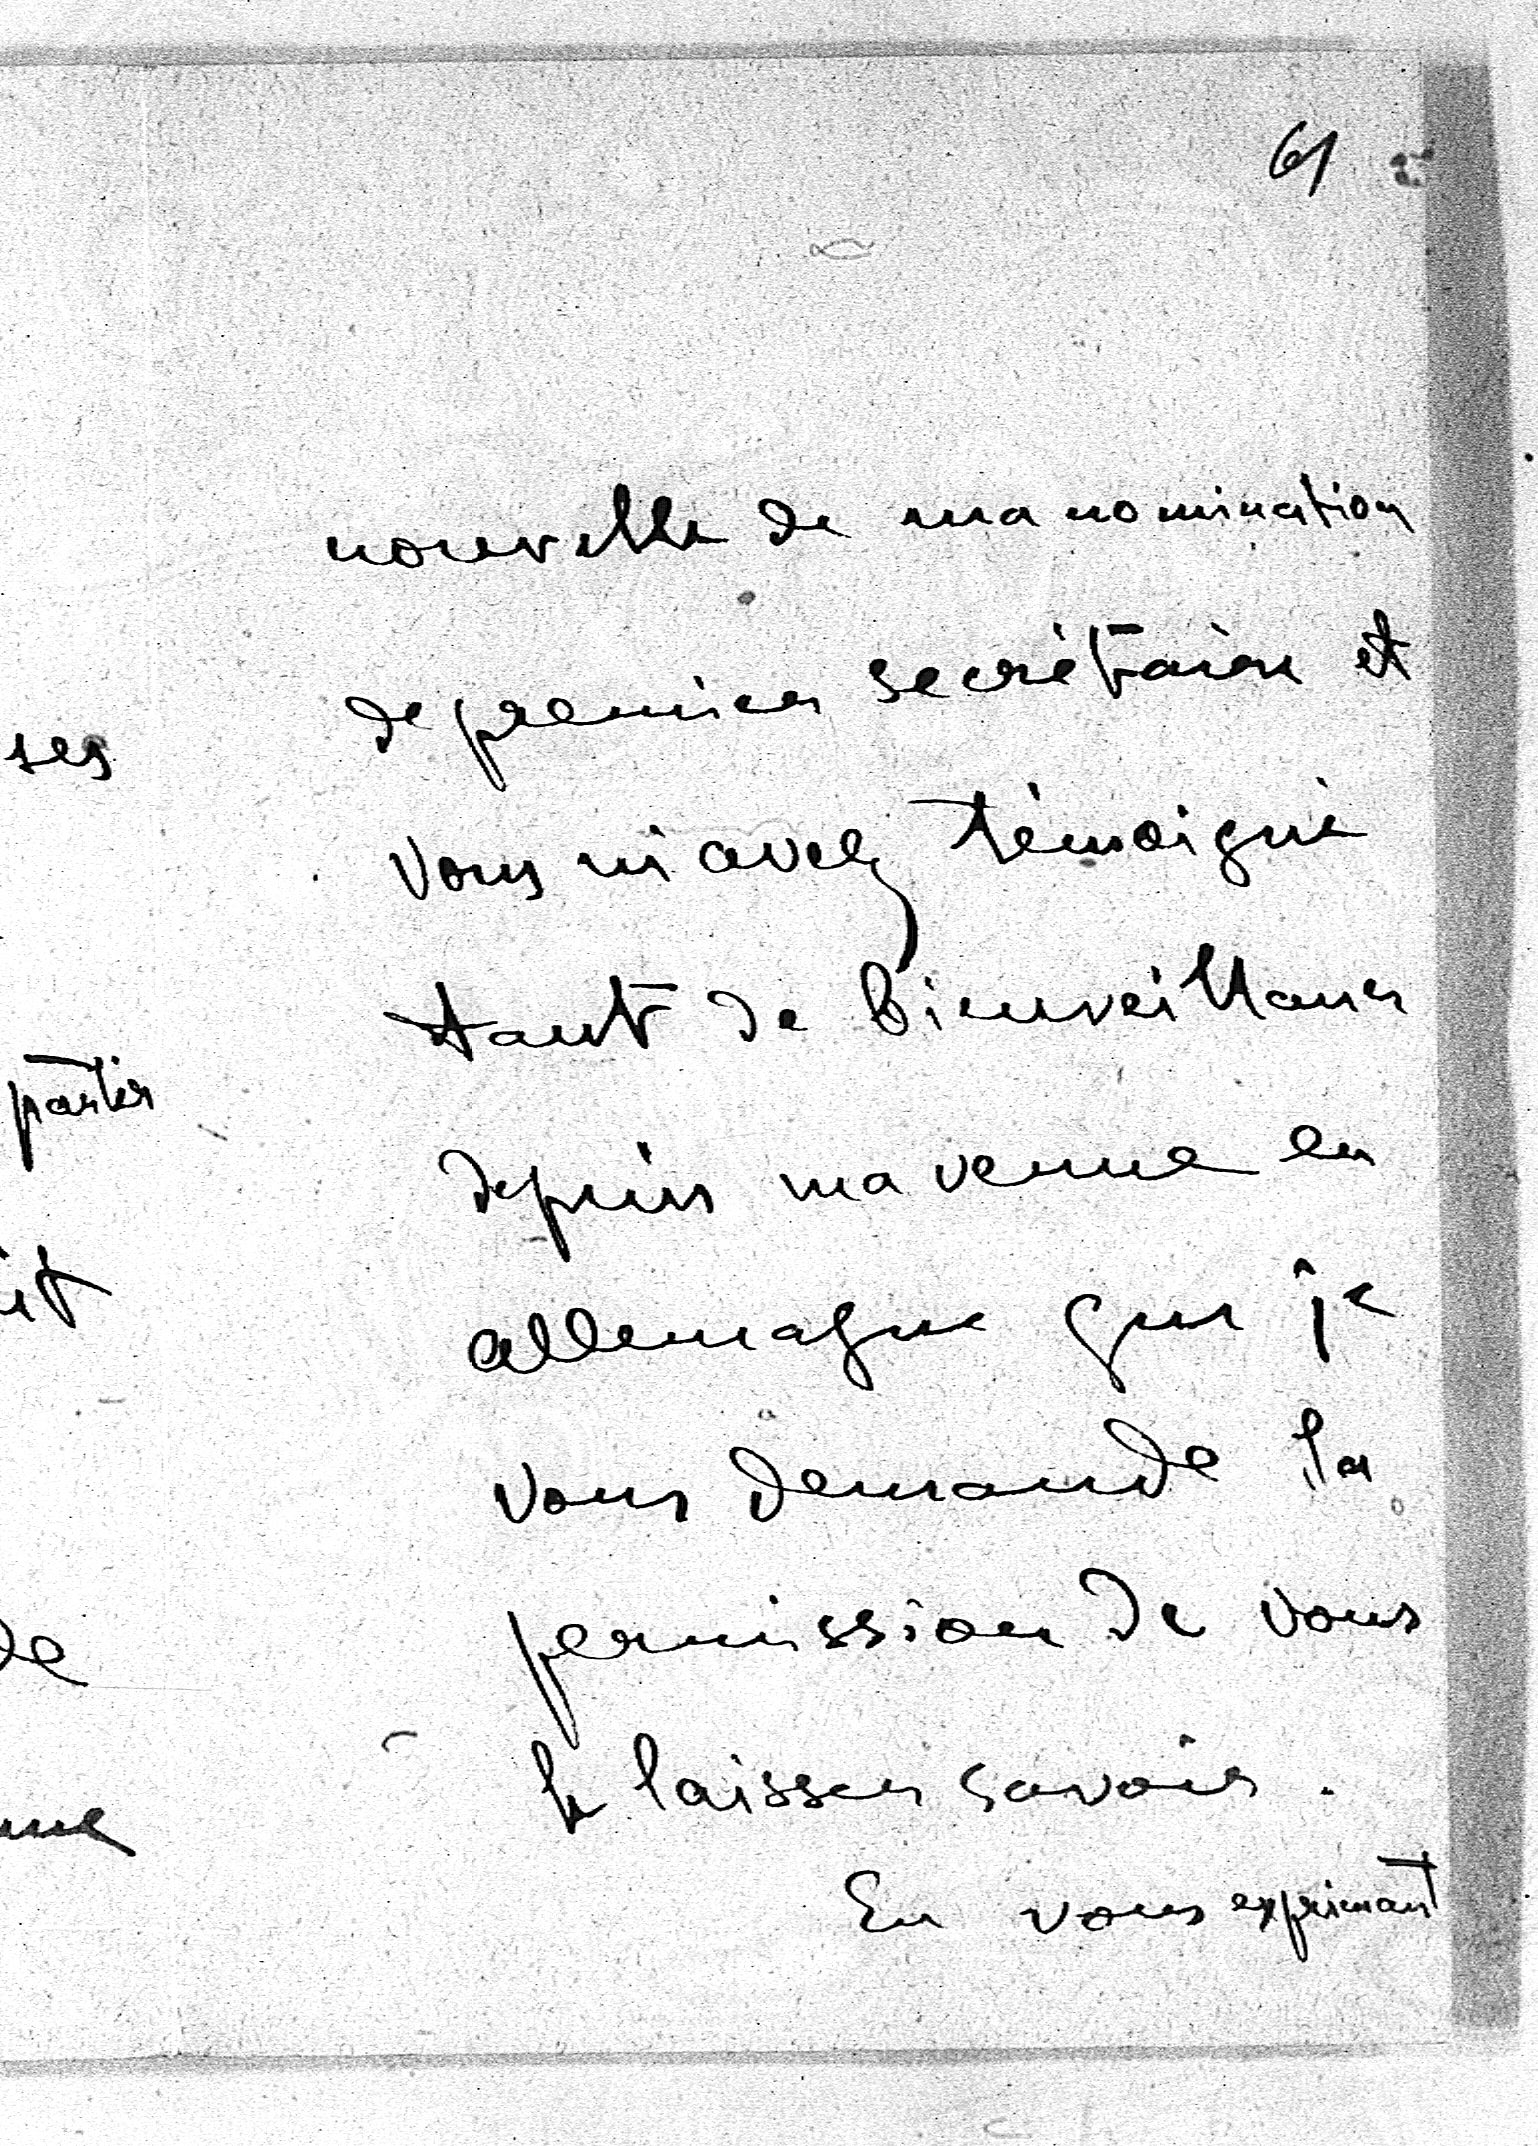 61
nouvelle de ma nomination
de premier secrétaire et
vous m'avez témoigné
tant de bienveillance
depuis ma venue en
allemagne que je
vous demande la
permission de vous
le laisser savoir.
En vous exprimant
ses
partir
de